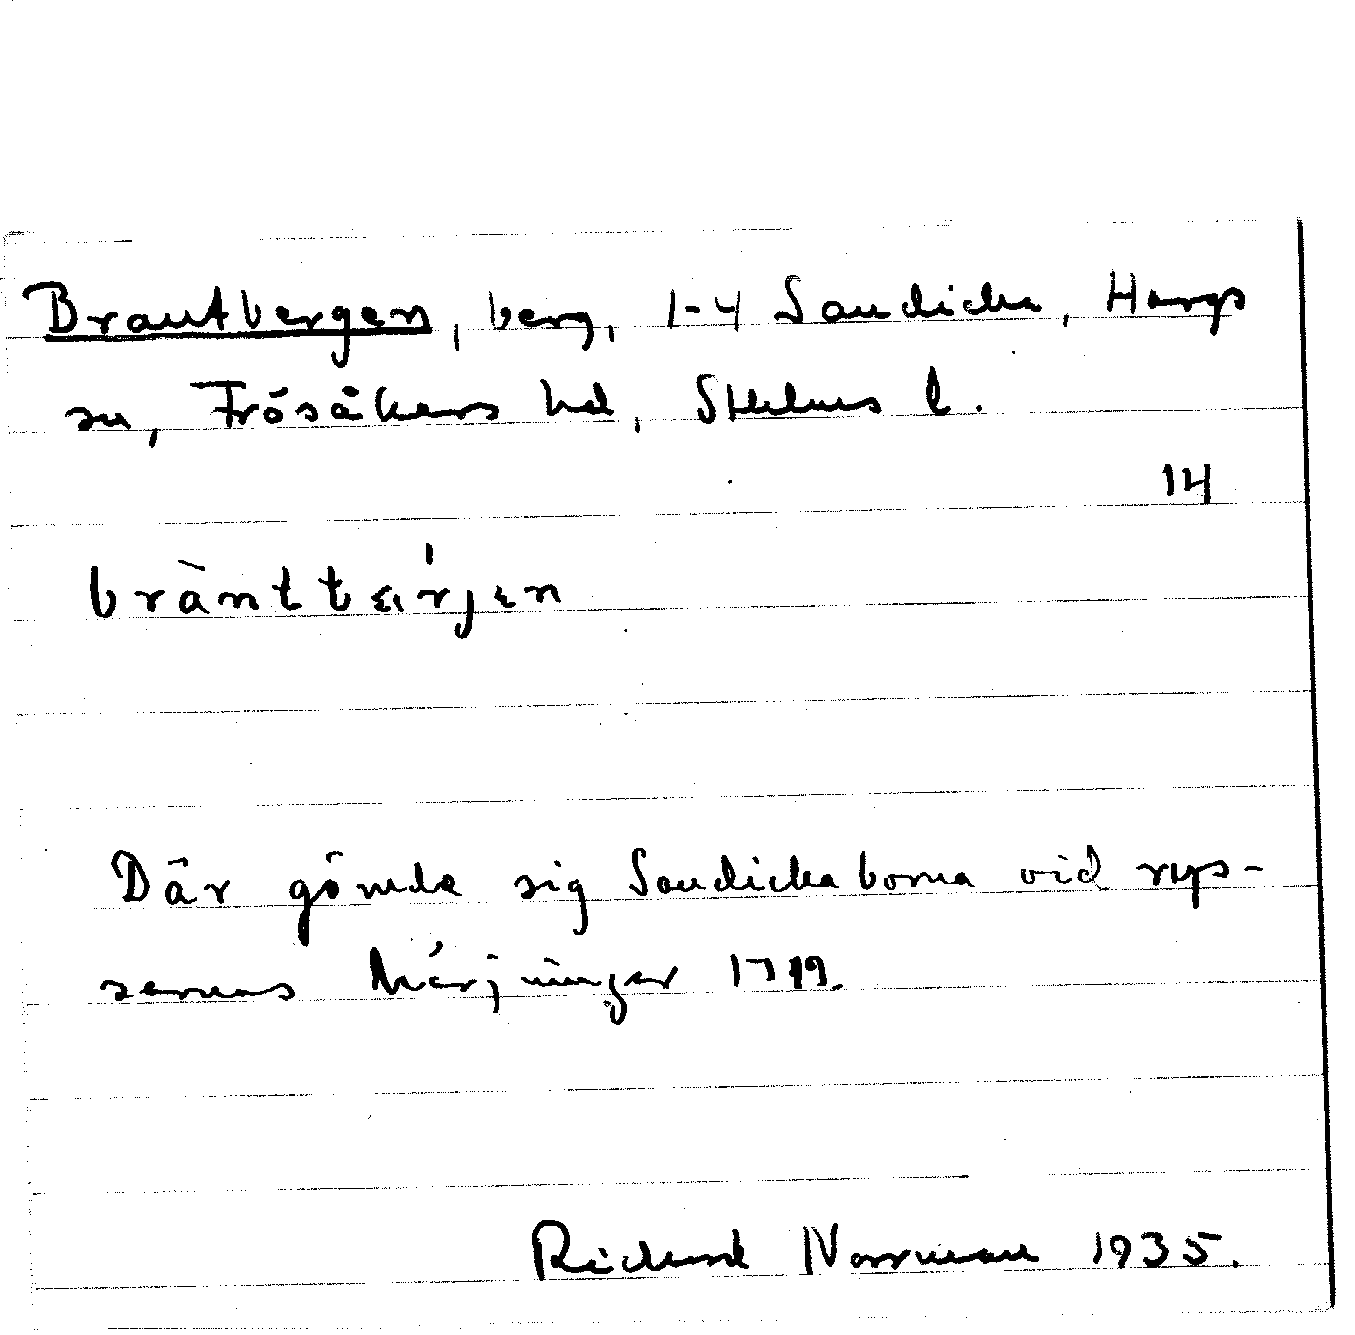 Brantbergen, berg, 1-4 Sandicka, Hargs
sn, Frösåkers hd, Sthlms l.
14
Där gömde sig Sandickaborna vid rys-
sarnas härjningar 1719.
Richard Norrman 1935.